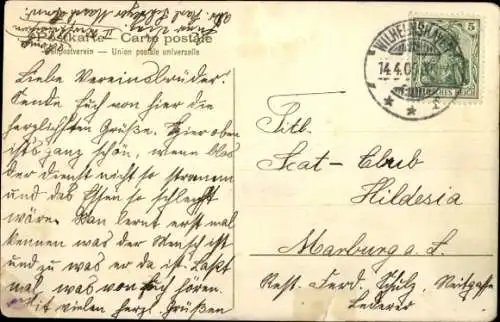 Postkarte – Carte postale
Weltpostverein – Union postale universelle
Liebe Vereinsbrüder
Sende Euch von hier die
herzlichsten Grüße. Hier oben
ist's ganz schön, wenn blos
der Dienst nicht so stramm
und das Essen so schlecht
wäre. Man lernt erst mal
kennen was der Mensch ist
und zu was er da ist. Laßt
mal was von Euch hören.
Mit vielen herzl. Grüßen
WILHELMSHAVEN
14.4.0
5
DEUTSCHES REICH
Titl.
Scat-Club
Hildesia
Marburg a. L.
Rest. Ferd. Schulz,